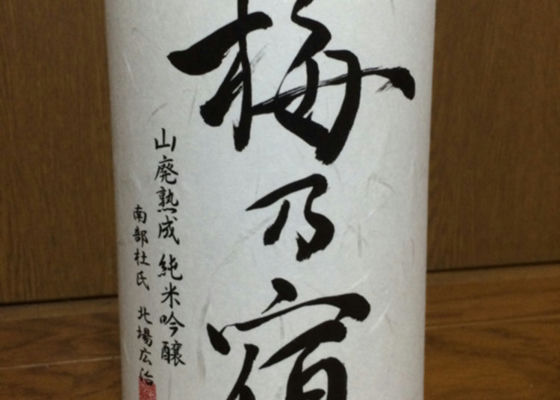 梅乃宿
山廃熟成 純米吟醸
南部杜氏 北場広治